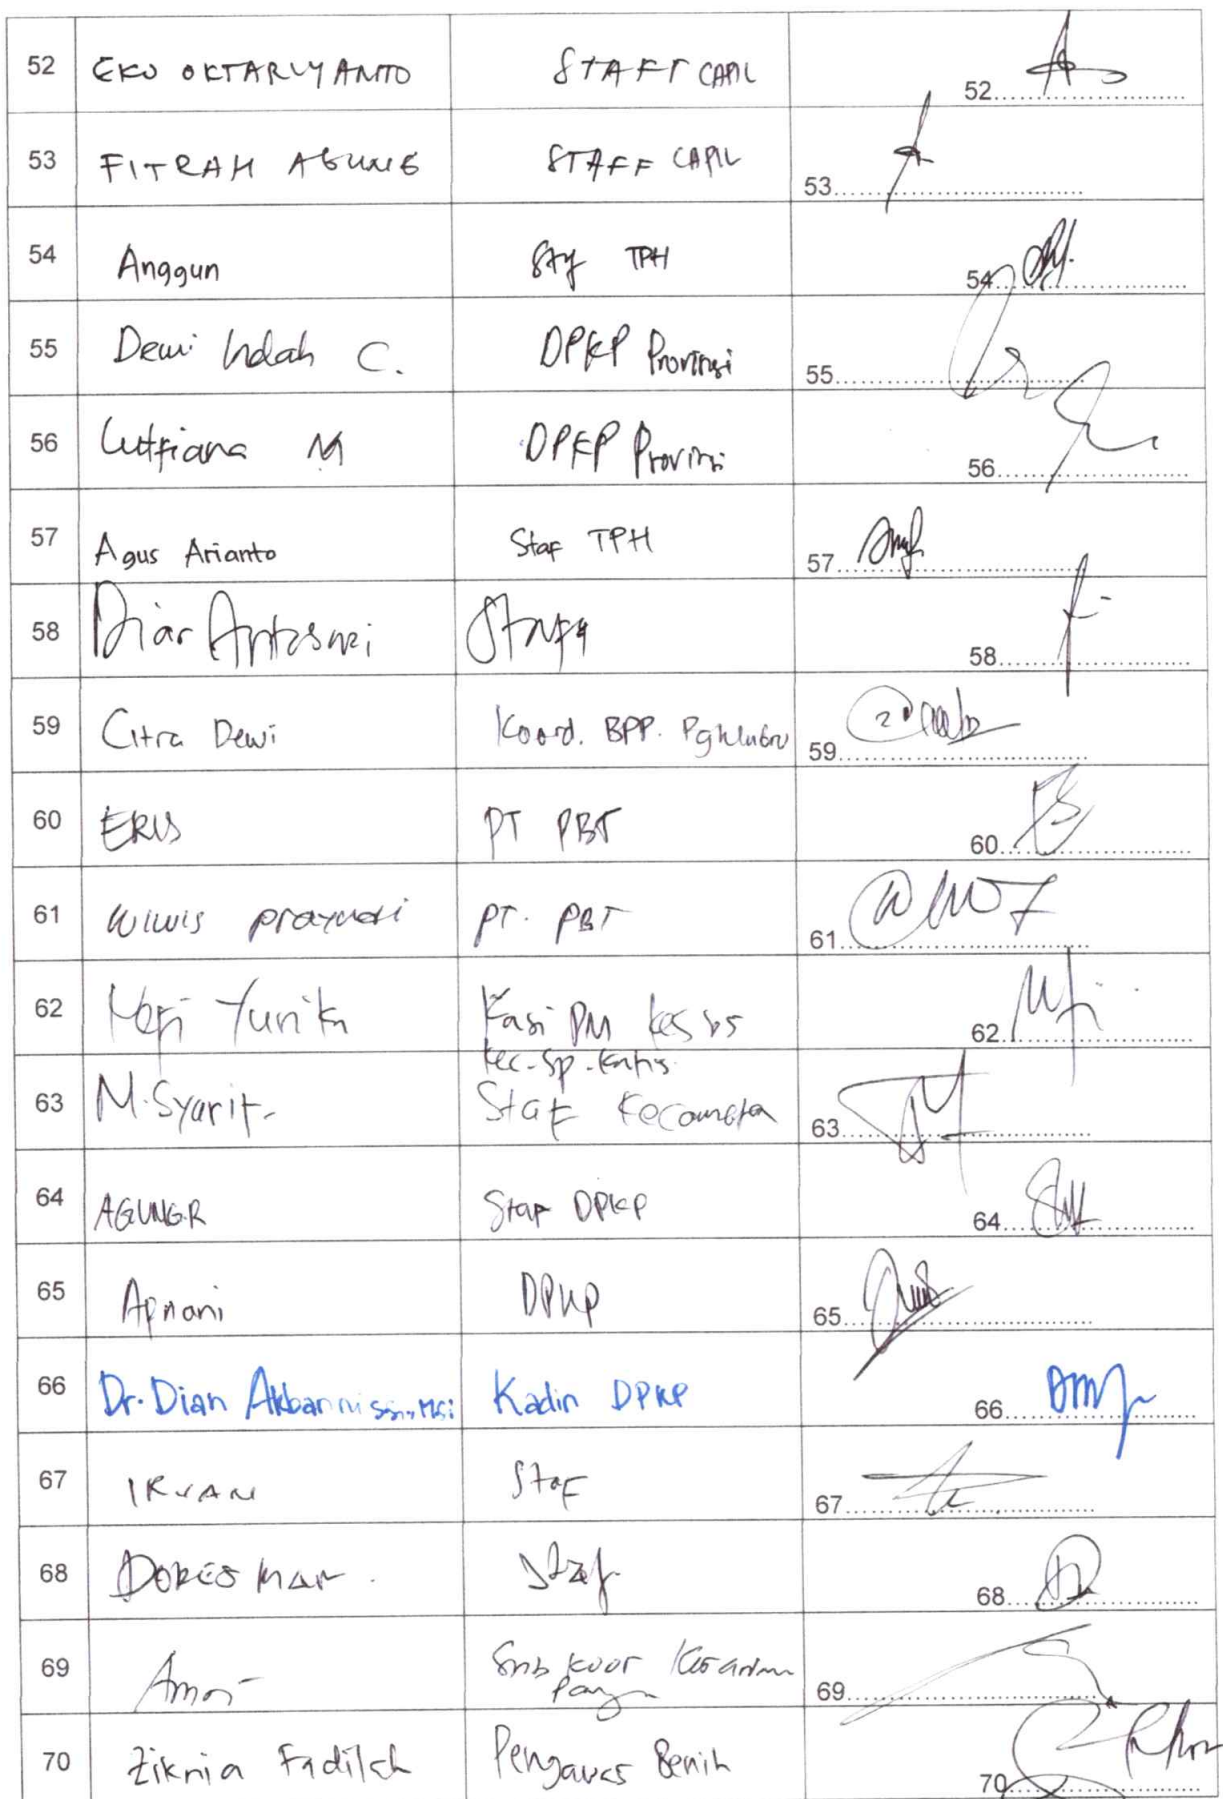 52 EKO OKTARIYANTO STAFF CAPIL 52
53 FITRAH AGUNG STAFF CAPIL 53
54 Anggun Staf TPH 54
55 Dewi Indah C. DPKP Provinsi 55
56 Lutfiana M DPKP Provinsi 56
57 Agus Arianto Staf TPH 57
58 Diar Antasari Staff 58
59 Citra Dewi Koord. BPP. 59
60 ERUS PT PBT 60
61 WIWIS PT. PBT 61
62 Yunik Kasi PM Kesos 62
Kec. Sp. Katis
63 M. Syarif. Staf Kecamatan 63
64 AGUNG.R Staf DPKP 64
65 Apnani DPKP 65
66 Dr. Dian Akbarini S.Si., M.Si Kadin DPKP 66
67 IRVAN Staf 67
68 DORESMAN. Staf 68
69 Sub Koor 69
70 Ziknia Fadilah Pengawas Benih 70